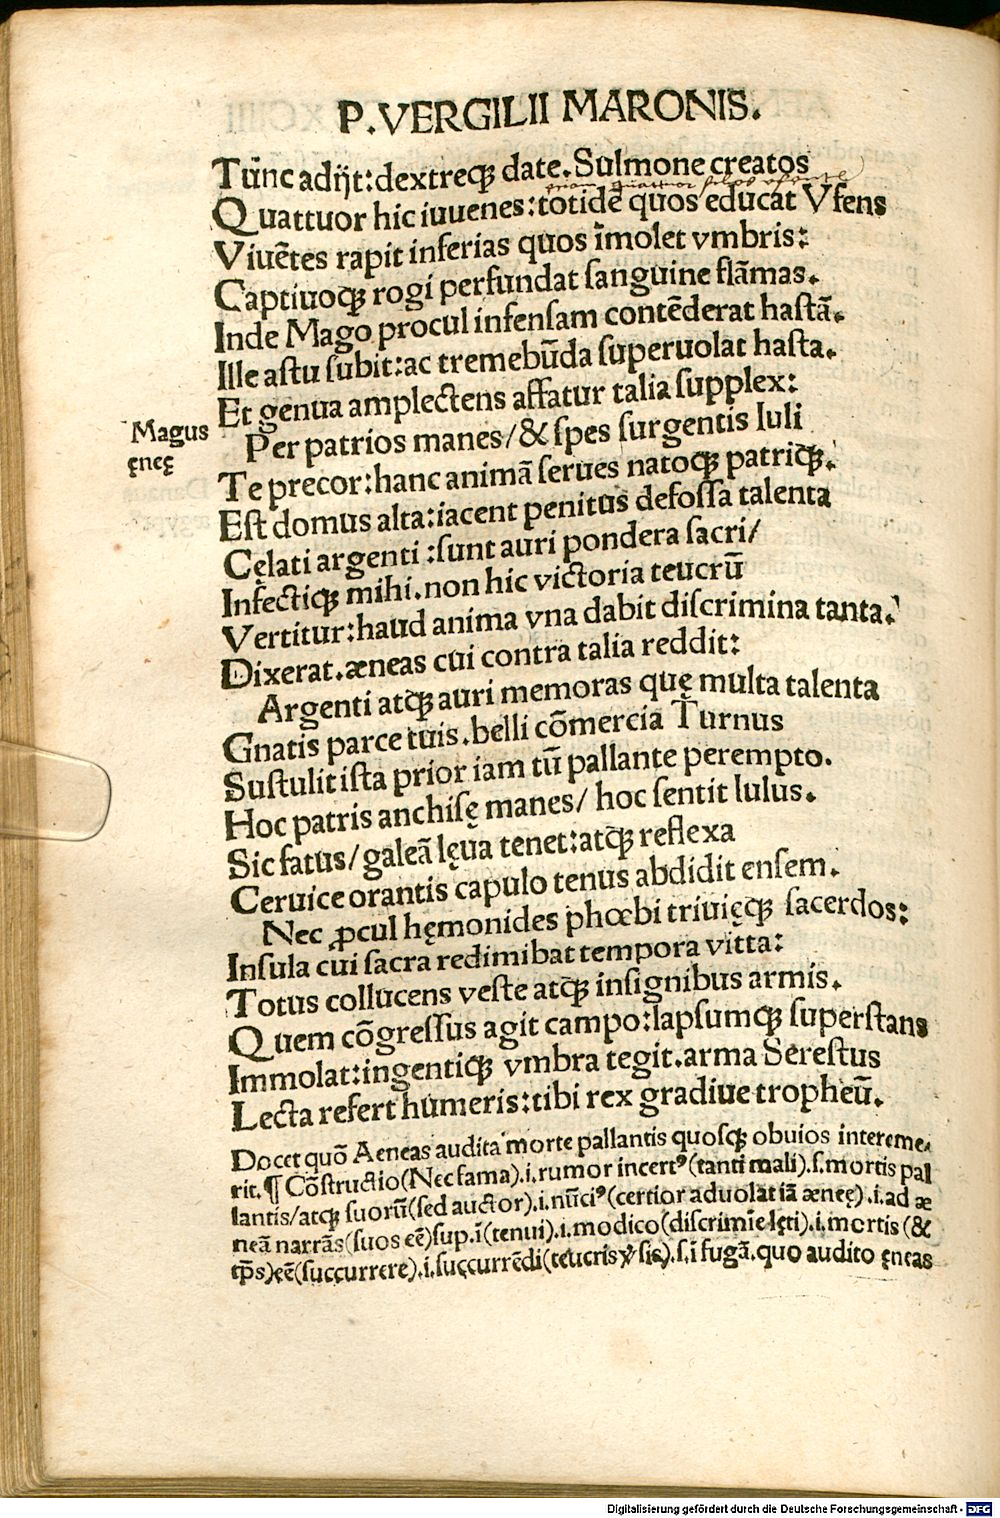 P.VERGILII MARONIS.
Tūnc adijt:dextreqꝫ date.Sulmone creatos
Quattuor hic iuuenes:totidē quos educat Vfens
Viuētes rapit inferias quos īmolet vmbris:
Captiuoqꝫ rogi perfundat ſanguine flāmas.
Inde Mago procul infenſam contēderat haſtā.
Ille aſtu ſubit:ac tremebūda ſuperuolat haſta.
Et genua amplectens affatur talia ſupplex:
Magus
ęneę
Per patrios manes/& ſpes ſurgentis Iuli
Te precor:hanc animā ſerues natoqꝫ patriqꝫ.
Eſt domus alta:iacent penitus defoſſa talenta
Cęlati argenti:ſunt auri pondera facri/
Infectiqꝫ mihi.non hic victoria teucrū
Vertitur:haud anima vna dabit diſcrimina tanta.
Dixerat.æneas cui contra talia reddit:
Argenti atqꝫ auri memoras quę multa talenta
Gnatis parce tuis.belli cōmercia Turnus
Suſtulit iſta prior iam tū pallante perempto.
Hoc patris anchiſę manes/ hoc ſentit Iulus.
Sic fatus/galeā lęua tenet:atqꝫ reflexa
Ceruice orantis capulo tenus abdidit enſem.
Nec ꝓcul hęmonides phœbi triuięqꝫ ſacerdos:
Inſula cui ſacra redimibat tempora vitta:
Totus collucens veſte atqꝫ inſignibus armis.
Quem cōgreſſus agit campo:lapſumqꝫ ſuperſtans
Immolat:ingentiqꝫ vmbra tegit.arma Sereſtus
Lecta refert humeris:tibi rex gradiue tropheū.
Docet quō Aeneas audita morte pallantis quoſqꝫ obuios intereme⸗
rit.¶ Cōſtructio(Nec fama).i.rumor incertꝰ(tanti mali).ſ.mortis pal
lantis/atqꝫ ſuorū(ſed auctor).i.nūciꝰ(certior aduolat iā æneę).i.ad æ
neā narrās(ſuos eē)ſup.ī(tenui).i.modico(diſcrimīe lęti).i.mortis (&
tp̄s)eē(ſuccurrere).i.ſuccurrēdi(teucris ỽſis).ſ.ī fugā.quo audito ęneas
Digitalisierung gefördert durch die Deutsche Forschungsgemeinschaft - DFG